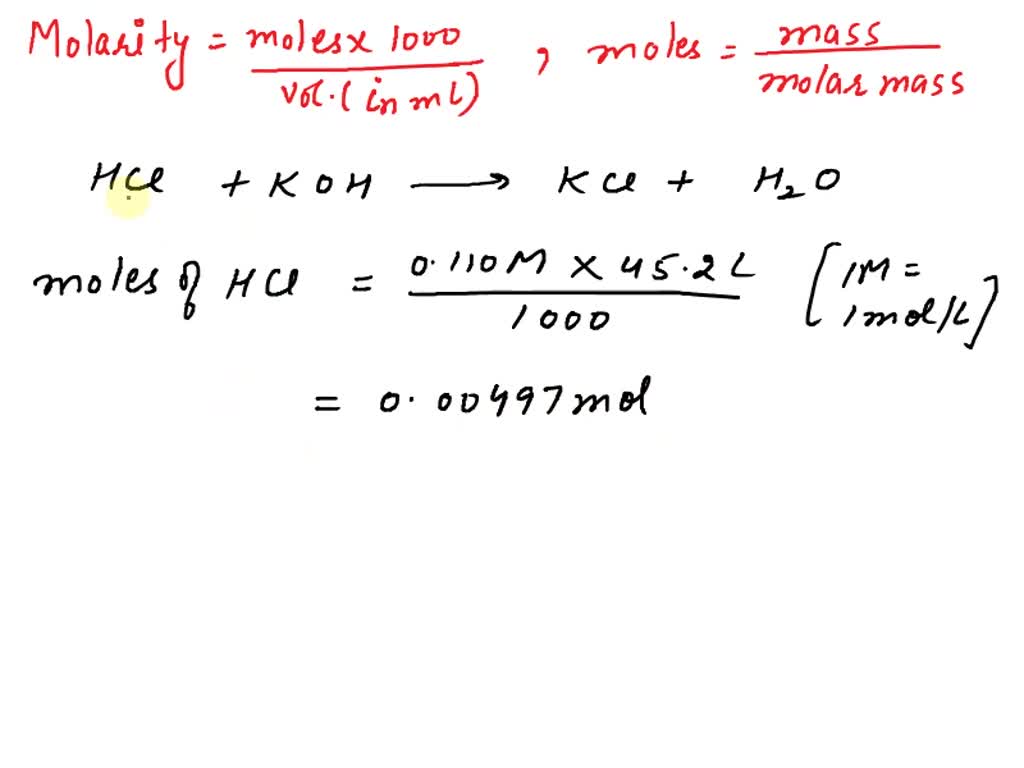 Molarity = moles x 1000 / vol. (in mL) , moles = mass / molar mass
HCl + KOH ⟶ KCl + H₂O
moles of HCl = 0.110M X 45.2L / 1000 [1M = 1mol/L]
= 0.00497mol